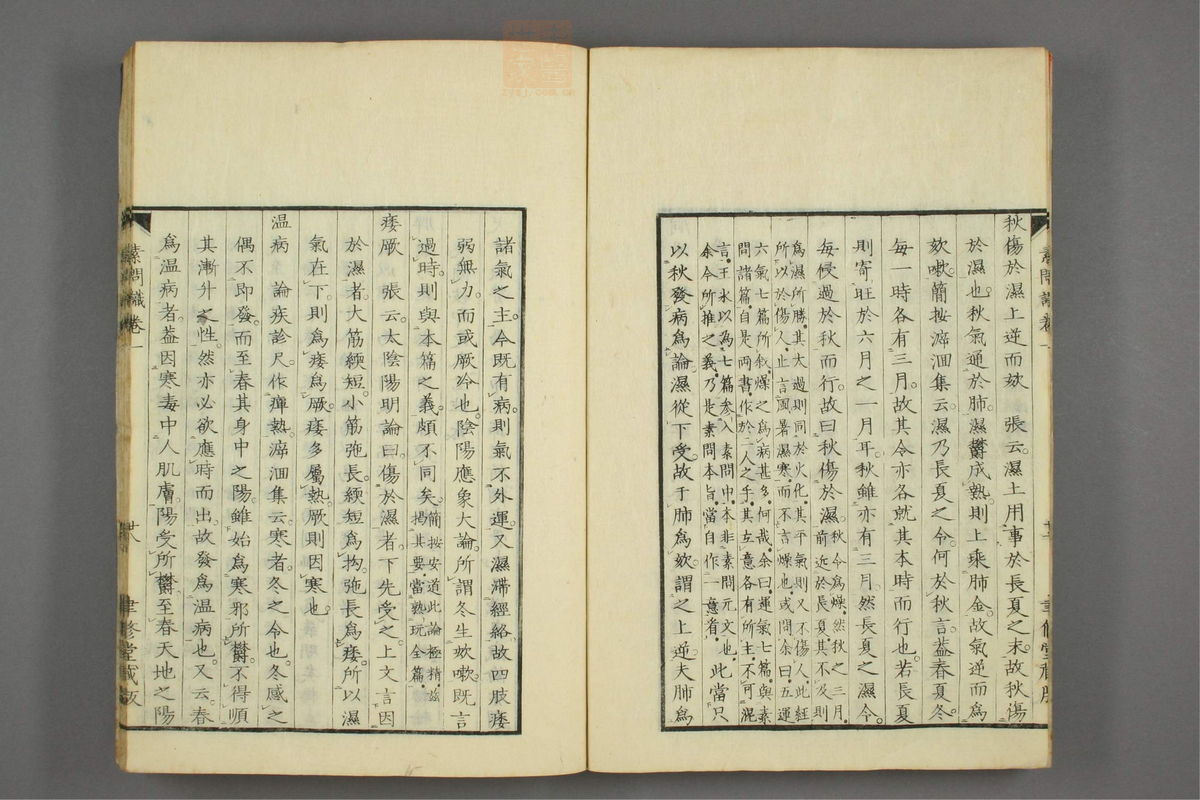 秋傷於濕上逆而欬　張云。濕土用事於長夏之末。故秋傷
於濕也。秋氣通於肺。濕鬱成熟。則上乘肺金。故氣逆而爲
欬嗽。簡按㴑洄集云。濕乃長夏之令。何於秋言。葢春夏冬
每一時各有三月。故其令亦各就其本時而行也。若長夏
則寄旺於六月之一月耳。秋雖亦有三月。然長夏之濕令。
每侵過於秋而行。故曰秋傷於濕。
秋令爲燥。然秋之三月。
前近於長夏。其不及則
爲濕所勝。其太過則同於火化。其平氣則又不傷人。此經
所以於傷人。止言風暑濕寒。而不言燥也。或問余曰。五運
六氣七篇所敘燥之爲病甚多。何哉。余曰。運氣七篇。與素
問諸篇。自是兩書。作於二人之手。其立意各有所主。不可混
言。王氷以為七篇參入素問中。本非素問元文也。
余今所推之義。乃是素問本旨。當自作一意省。
此當只
以秋發病爲論。濕從下受。故干肺爲欬。謂之上逆。夫肺爲
諸氣之主。今既有病。則氣不外運。又濕滯經絡。故四肢痿
弱無力。而或厥冷也。陰陽應象大論。所謂冬生欬嗽。既言
過時。則與本篇之義。頗不同矣。
簡按安道此論極精。茲
掲其要。當熟玩全篇。
痿厥　張云。太陰陽明論曰。傷於濕者。下先受之。上文言因
於濕者。大筋緛短。小筋弛長。緛短爲拘。弛長爲痿。所以濕
氣在下。則爲痿爲厥。痿多屬熱。厥則因寒也。
温病　論疾診尺。作癉熱。㴑洄集云。寒者。冬之令也。冬感之
偶不即發。而至春其身中之陽。雖始爲寒邪所鬱。不得順
其漸升之性。然亦必欲應時而出。故發爲温病也。又云。春
爲温病者。葢因寒毒中人肌膚。陽受所鬱。至春天地之陽
素問識卷一
廿八
聿修堂藏版